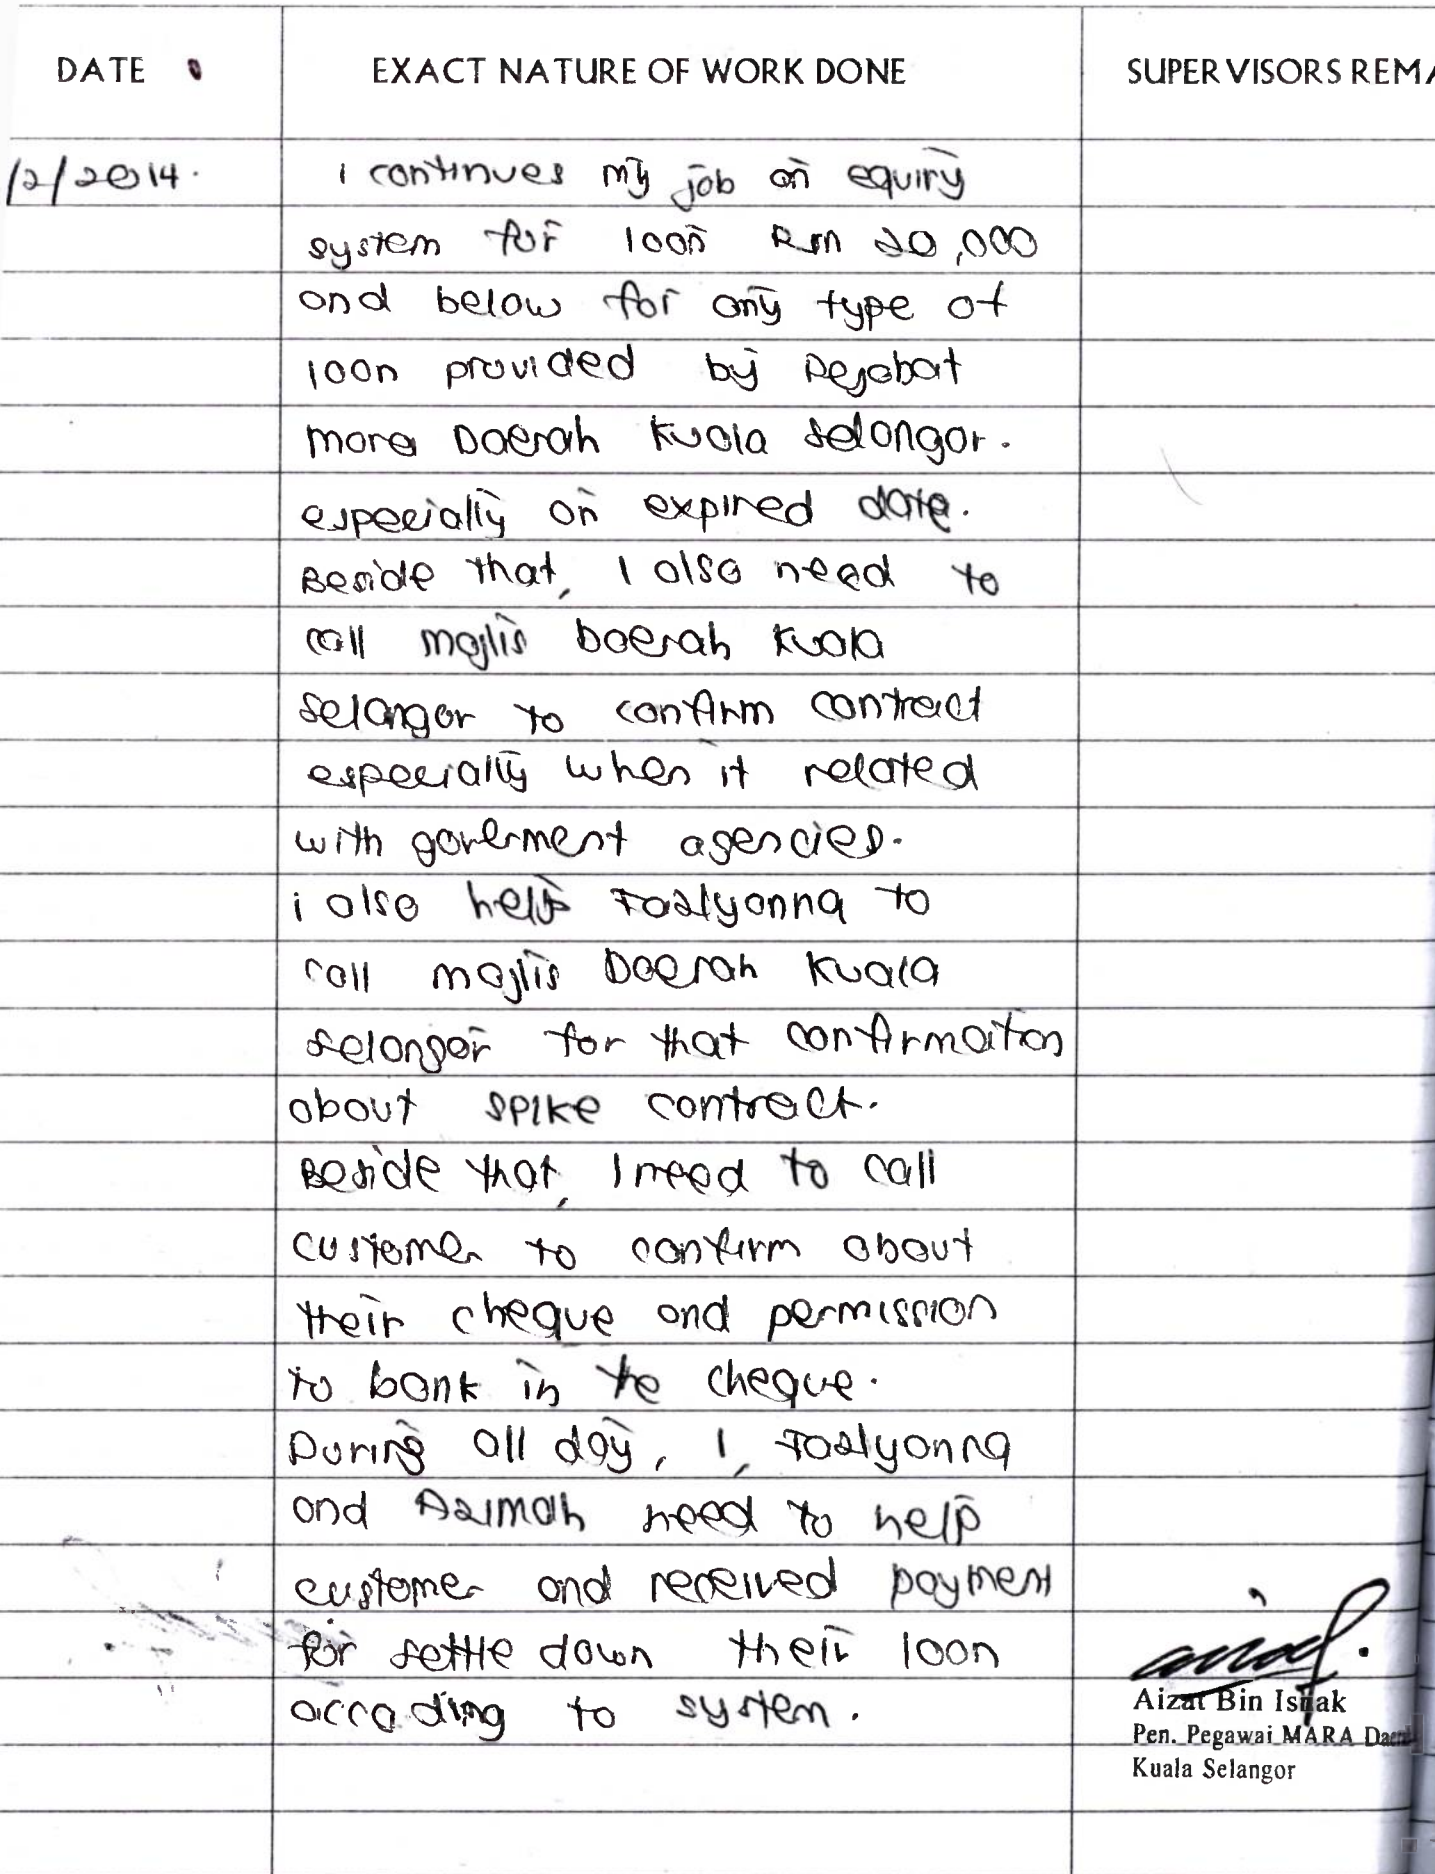 DATE EXACT NATURE OF WORK DONE SUPERVISORS REMA
/2/2014. i continues my job on equiry
system for loan Rm 20,000
and below for any type of
loan provided by Pejabat
mara Daerah Kuala Selangor.
especially on expired date.
Beside that, I also need to
call majlis Daerah Kuala
Selangor to confirm contract
especially when it related
with goverment agencies.
i also help Fazlyanna to
call majlis Daerah Kuala
Selangor for that confirmation
about SPIKE contract.
Beside that, I need to call
customer to confirm about
their cheque and permission
to bank in te cheque.
During all day, I, Fazlyanna
and Azimah need to help
customer and received payment
for settle down their loan
accoding to system.
Aizat Bin Ishak
Pen. Pegawai MARA Dae
Kuala Selangor